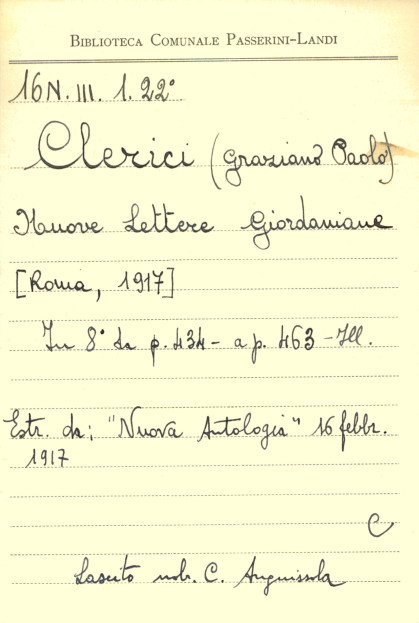 BIBLIOTECA COMUNALE PASSERINI-LANDI
16N. III. 1. 22°
Clerici (Graziano Paolo)
Nuove Lettere Giordaniane
[Roma, 1917]
In 8° da p. 434 - a p. 463 - Ill.
Estr. da: "Nuova Antologia" 16 febbr.
1917
C
Lascito nob. C. Anguissola